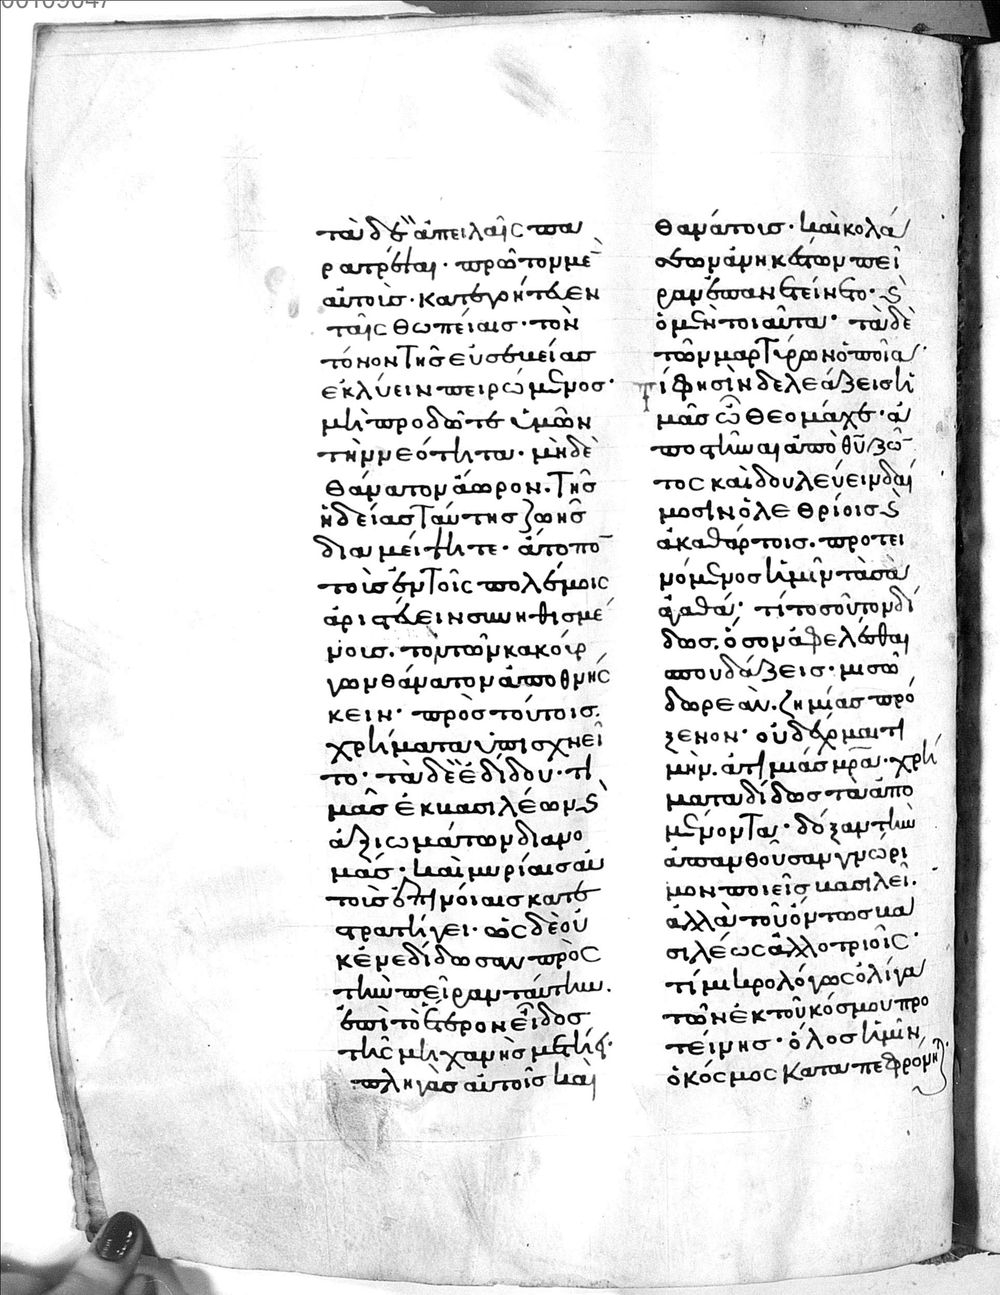 τὰ δὲ ἀπειλαῖς πα
ρατρέψαι· πρῶτον μὲν
αὐτοὺς κατεγοήτευεν
ταῖς θωπείαις· τὸν
τόνον τῆς εὐσεβείας
ἐκλύειν πειρώμενος·
μὴ προδῶτε ὑμῶν
τὴν νεότητα· μὴ δὲ
θάνατον ἄωρον· τῆς
ἡδείας ταύτης ζωῆς
διαμείψητε· ἄτοπον
τοὺς ἐν τοῖς πολέμοις
ἀριστεύειν συνηθισμέ
νοις· τὸν τῶν κακούρ
γων θάνατον ἀποθνής
κειν· πρὸς τούτοις
χρήματα ὑπισχνεῖ
το· τὰ δὲ ἐδίδου· τι
μὰς ἐκ βασιλέων ϗ
ἀξιωμάτων διανο
μάς· καὶ μυρίαις αὐ
τοὺς ἐπινοίαις κατε
στρατήγει· ὡς δὲ οὐ
κ ἐνεδίδωσαν πρὸς
τὴν πεῖραν ταύτην·
ἐπὶ τὸ ἕτερον εἶδος
τῆς μηχανῆς μετῄει·
πληγὰς αὐτοῖς καὶ
θανάτοις· καὶ κολά
σεων ἀνηκέστων πεῖ
ραν ἐπανετείνετο· ϗ
ὁ μὲν τοιαῦτα· τὰ δὲ
τῶν μαρτύρων ὁποῖα·
τί φησὶν δελεάζεις ἡ
μᾶς ὦ θεομάχε· ἀ
ποστῆναι ἀπὸ θῦ ζῶν
τος καὶ δουλεύειν δαί
μοσιν ὀλεθρίοις ϗ
ἀκαθάρτοις· προτει
νόμενος ἡμῖν τὰ σὰ
ἀγαθά· τί τοσοῦτον δί
δως· ὅσον ἀφελέσθαι
σπουδάζεις· μισῶ
δωρεὰν· ζημίας πρό
ξενον· οὐ δέχομαι τι
μὴν· ἀτιμίας μρα· χρή
ματα δίδως τὰ ἀπο
μένοντα· δόξαν τὴν
ἀπανθοῦσαν γνώρι
μον ποιεῖς βασιλεῖ·
ἀλλὰ τοῦ ὄντως βα
σιλέως ἀλλοτριοῖς·
τί μικρολόγως ὀλίγα
τῶν ἐκ τοῦ κόσμου προ
τείνης· ὅλος ἡμῖν
ὁ κόσμος καταπεφρόνη